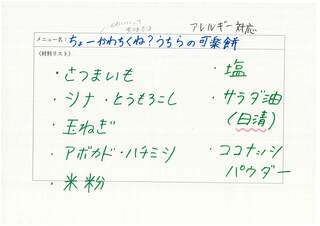 アレルギー対応
メニュー名：ちょーやわらくね？うちらの可楽餅
(材料リスト)
・さつまいも
・シナ・とうもろこし
・玉ねぎ
・アボカド・ハチミツ
・米粉
・塩
・サラダ油
(日清)
・ココナッツ
パウダー